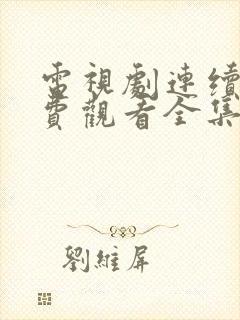 電視劇連續
費觀看全集
劉維屏